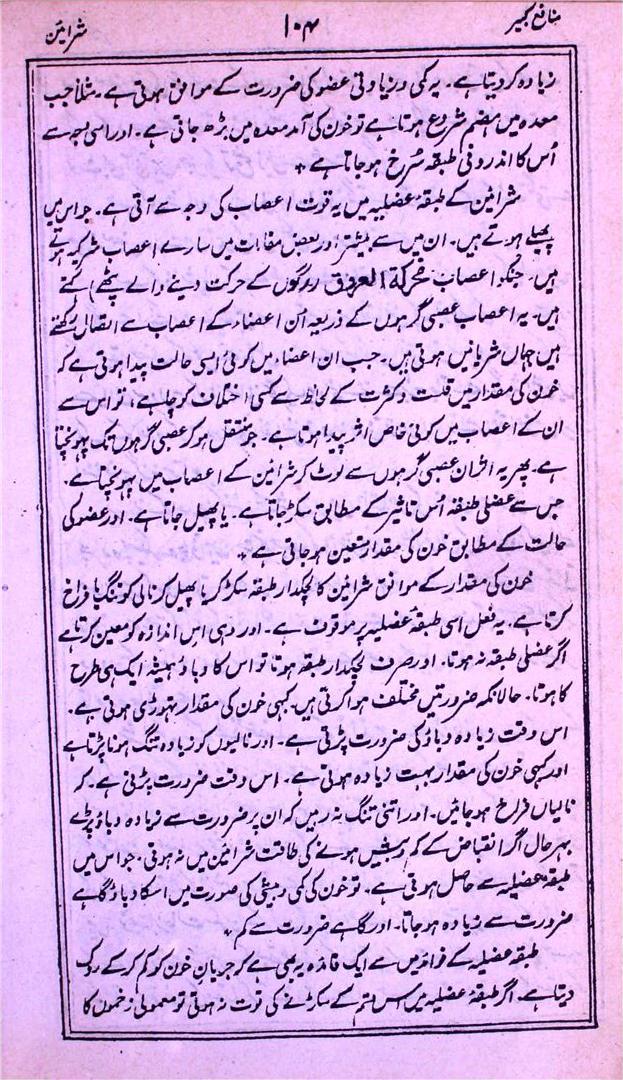 منافع کبیر ۱۰۴ شرائین
زیادہ کر دیتا ہے۔ یہ کمی و زیادتی عضو کی ضرورت کے موافق ہوتی ہے۔ مثلاً جب
معدہ میں ہضم شروع ہوتا ہے تو خون کی آمد معدہ میں بڑھ جاتی ہے۔ اور اسی وجہ سے
اُس کا اندرونی طبقہ سُرخ ہو جاتا ہے +
شرائین کے طبقہ عضلیہ میں یہ قوت اعصاب کی وجہ سے آتی ہے۔ جو اس میں
پھیلے ہوتے ہیں۔ ان میں سے بیشتر اور بعض مقامات میں سارے اعصاب شرکیہ ہوتے
ہیں۔ جنکو اعصاب محرکۃ العروق (رگوں کے حرکت دینے والے پٹھے) کہتے
ہیں۔ یہ اعصاب عصبی گرہوں کے ذریعہ اُن اعضاء کے اعصاب سے اتصال رکھتے
ہیں جہاں شریانیں ہوتی ہیں۔ جب ان اعضاء میں کوئی ایسی حالت پیدا ہوتی ہے کہ
خون کی مقدار میں قلت و کثرت کے لحاظ سے کسی اختلاف کو چاہے، تو اس سے
ان کے اعصاب میں کوئی خاص اثر پیدا ہوتا ہے۔ جو منتقل ہو کر عصبی گرہوں تک پہونچتا
ہے۔ پھر یہ اثر ان عصبی گرہوں سے لوٹ کر شرائین کے اعصاب میں پہونچتا ہے۔
جس سے عضلی طبقہ اُس تاثیر کے مطابق سکڑ جاتا ہے۔ یا پھیل جاتا ہے۔ اور عضو کی
حالت کے مطابق خون کی مقدار متعین ہو جاتی ہے +
خون کی مقدار کے موافق شرائین کا لچکدار طبقہ سکڑ کر یا پھیل کر نالی کو تنگ یا فراخ
کرتا ہے۔ یہ فعل اسی طبقۂ عضلیہ پر موقوف ہے۔ اور وہی اس اندازہ کو معین کرتا ہے
اگر عضلی طبقہ نہ ہوتا۔ اور صرف لچکدار طبقہ ہوتا تو اس کا دباؤ ہمیشہ ایک ہی طرح
کا ہوتا۔ حالانکہ ضرورتیں مختلف ہوا کرتی ہیں۔ کبھی خون کی مقدار تھوڑی ہوتی ہے۔
اس وقت زیادہ دباؤ کی ضرورت پڑتی ہے۔ اور نالیوں کو زیادہ تنگ ہونا پڑتا ہے
اور کبھی خون کی مقدار بہت زیادہ ہوتی ہے۔ اس وقت ضرورت پڑتی ہے۔ کہ
نالیاں فراخ ہو جائیں۔ اور اتنی تنگ نہ رہیں کہ ان پر ضرورت سے زیادہ دباؤ پڑے
بہر حال اگر انقباض کے کم و بیش ہونے کی طاقت شرائین میں نہ ہوتی۔ جو اس میں
طبقۂ عضلیہ سے حاصل ہوتی ہے۔ تو خون کی کمی و بیشی کی صورت میں اسکا دباؤ گاہے
ضرورت سے زیادہ ہو جاتا۔ اور گاہے ضرورت سے کم +
طبقہ عضلیہ کے فوائد میں سے ایک فائدہ یہ بھی ہے کہ جریان خون کو کم کر کے روک
دیتا ہے۔ اگر طبقۂ عضلیہ میں اس قسم کے سکڑنے کی قوت نہ ہوتی تو معمولی زخموں کا